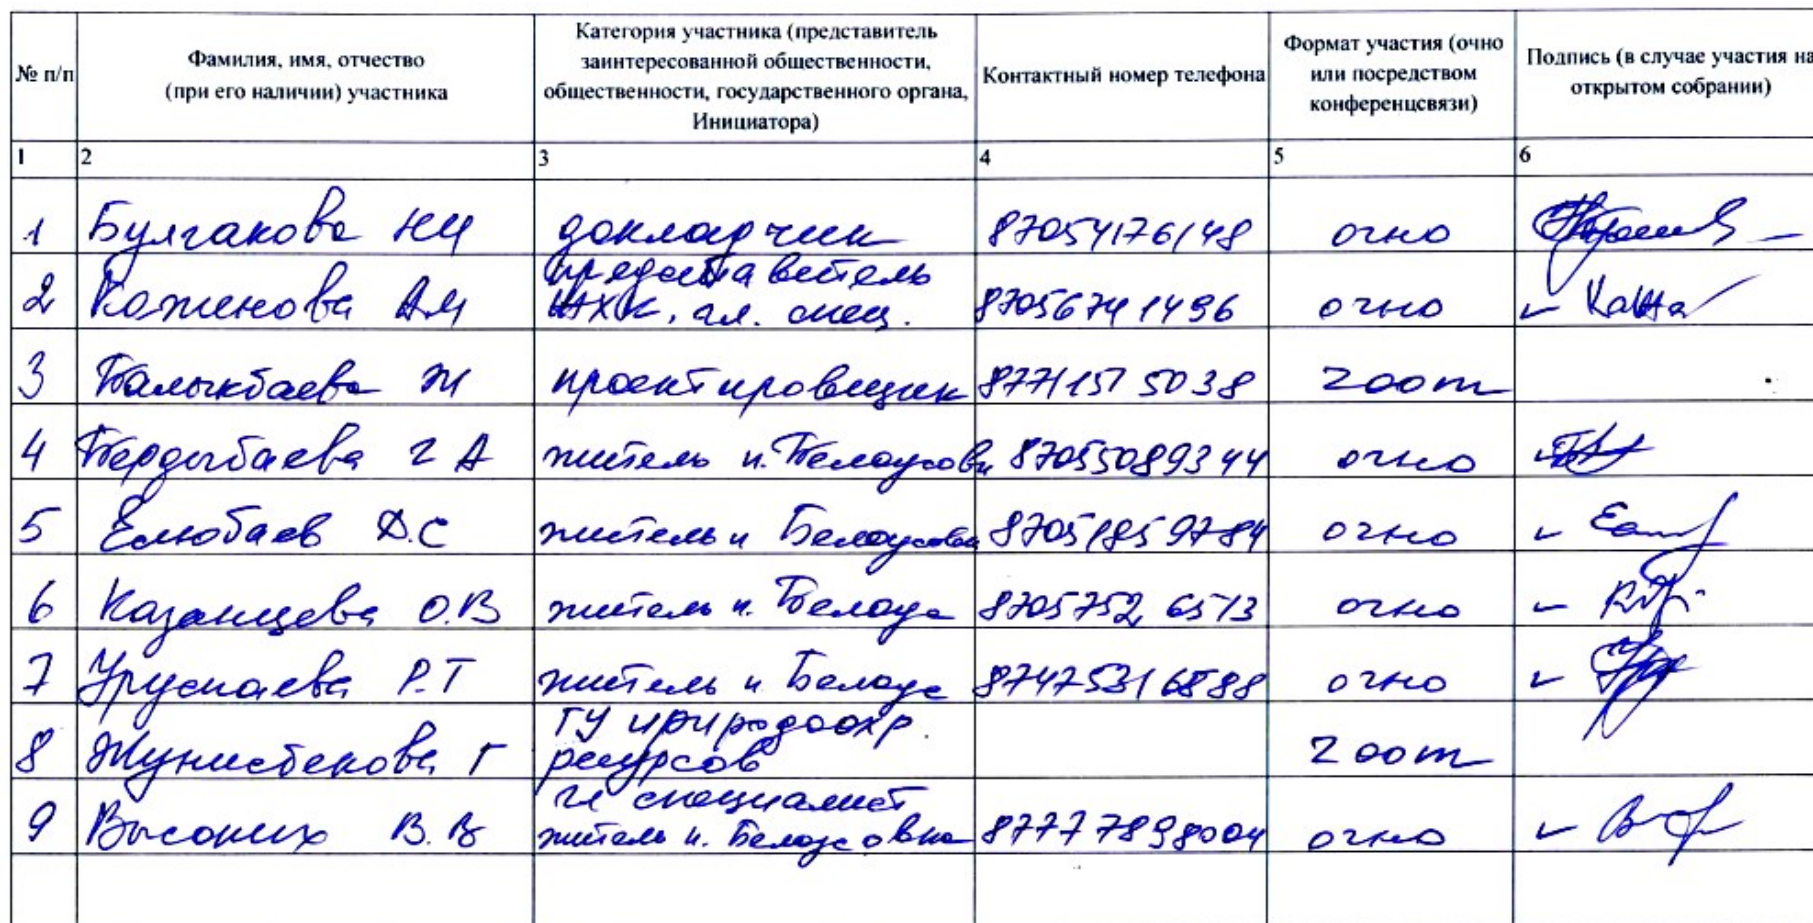 № п/п
Фамилия, имя, отчество
(при его наличии) участника
Категория участника (представитель
заинтересованной общественности,
общественности, государственного органа,
Инициатора)
Контактный номер телефона
Формат участия (очно
или посредством
конференцсвязи)
Подпись (в случае участия на
открытом собрании)
1 2 3 4 5 6
1 Булгакова НИ докладчик 87054176148 очно
2 Коженова АМ представитель
гл. спец. 87056741496 очно
3 Балыкбаева Ж проектировщик 87711575038 zoom
4 Бердыбаева г А житель п. Белоусовк 87055089344 очно
5 Елюбаев Д.С житель п Белоусовка 87051859784 очно
6 Казанцева О.В житель п. Белоус 87057526513 очно
7 Уруспаева Р.Т житель п Белоус 87475316888 очно
8 Жунисбекова Г ГУ природоохр.
ресурсов zoom
гл специалист
9 Высоких В.В житель п. Белоусовка 87777898004 очно